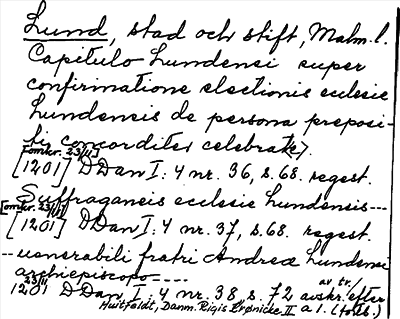 Lund, stad och stift, Malm. l.
Capitulo Lundensi super
confirmatione electionis ecclesie
Lundensis de persona preposi-
ti concorditer celebrate).
[omkr. 23/11]
[1201] DDan I: 4 nr. 36, s. 68. regest.
Suffraganeis ecclesie Lundensis---
[omkr. 23/11]
[1201] DDan I: 4 nr. 37, s. 68. regest.
--uenerabili fratri Andree Lundensi
archiepiscopo----
23/11 av tr./
1201 DDan I: 4 nr. 38 s. 72 avskr. efter
Huitfeldt, Danm. Rigis Krønicke II a 1. (forts.)